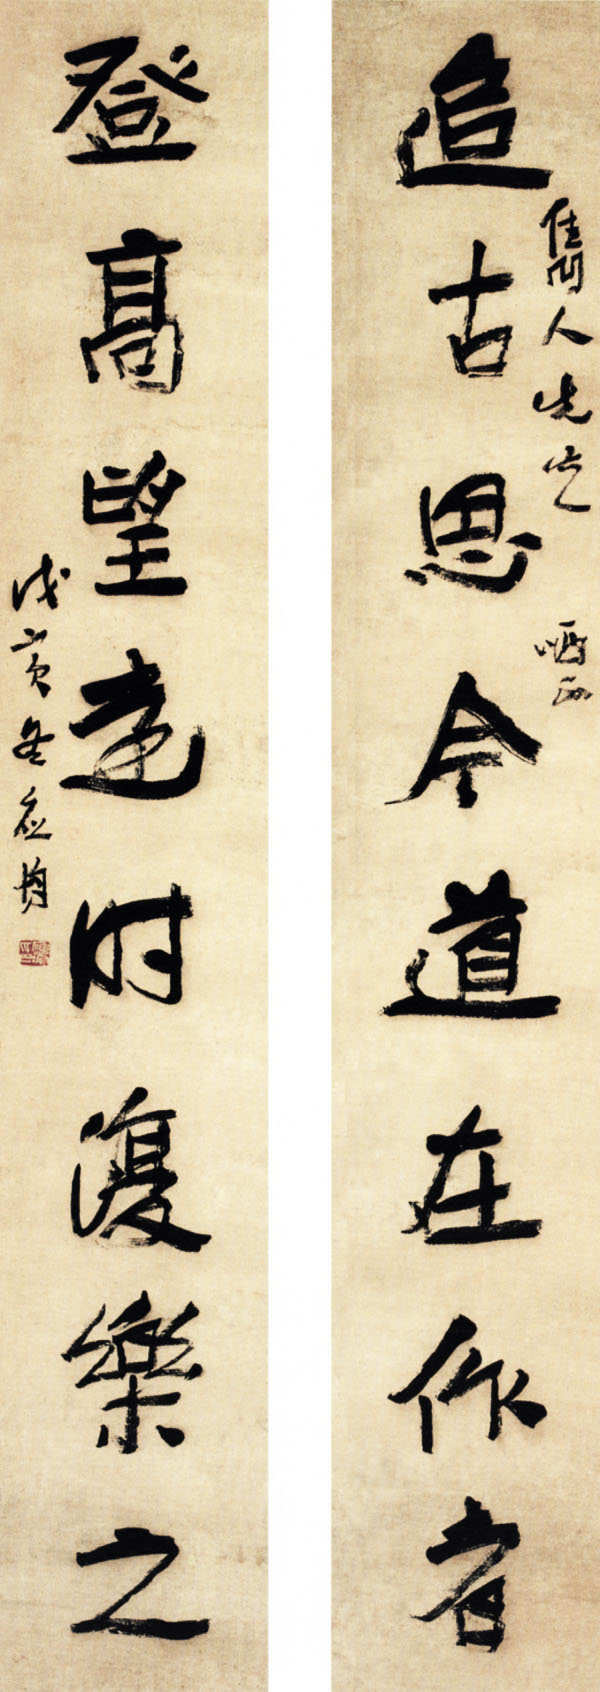 雋人先生 哂正
追古思今道在作者
登高望遠時復樂之
戊寅冬應均